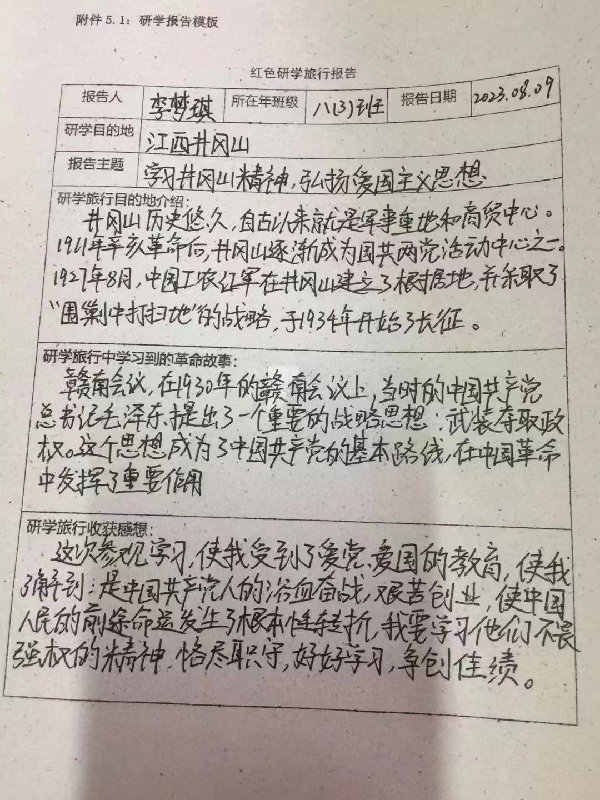 附件5.1：研学报告模板
红色研学旅行报告
报告人 李梦琪 所在年班级 八(3)班 报告日期 2023.08.09
研学目的地 江西井冈山
报告主题 学习井冈山精神，弘扬爱国主义思想
研学旅行目的地介绍：
井冈山历史悠久，自古以来就是军事重地和商贸中心。
1911年辛亥革命后，井冈山逐渐成为国共两党活动中心之一。
1927年8月，中国工农红军在井冈山建立了根据地，并采取了
“围剿中打扫地”的战略，于1934年开始了长征。
研学旅行中学习到的革命故事：
赣南会议，在1930年的赣南会议上，当时的中国共产党
总书记毛泽东提出了一个重要的战略思想：武装夺取政
权。这个思想成为了中国共产党的基本路线，在中国革命
中发挥了重要作用
研学旅行收获感想：
这次参观学习，使我受到了爱党、爱国的教育，使我
了解到：是中国共产党人的浴血奋战，艰苦创业，使中国
人民的前途命运发生了根本性转折，我要学习他们不畏
强权的精神，恪尽职守，好好学习，争创佳绩。